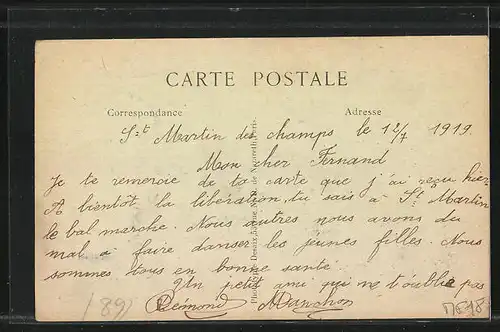 CARTE POSTALE
Correspondance
Adresse
S.t Martin des champs le 12/7 1919
Mon cher Fernand
Je te remercie de ta carte que j'ai reçu hier
A bientôt la libération, tu sais à St Martin
le bal marche. Nous autres nous avons du
mal à faire danser les jeunes filles. Nous
sommes tous en bonne santé
Un petit ami qui ne t'oublie pas
Rémond Manchon
189